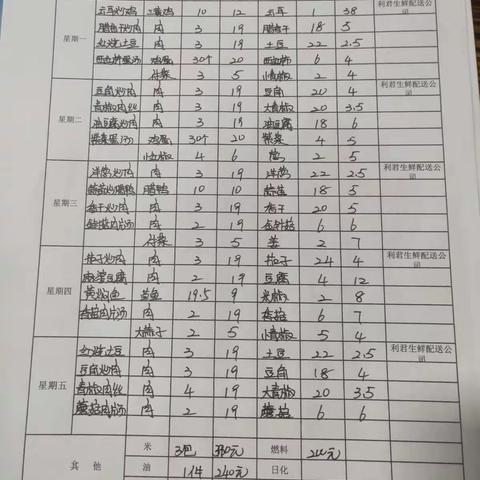 云耳炒鸡 土鸡 10 12 云耳 1 38 利君生鲜配送公司
星期一 肉 3 19 18 5
红烧土豆 肉 3 19 土豆 22 2.5
鸡蛋 30个 20 6 4
3 5 小青椒 2 4
豆角炒肉 肉 3 19 豆角 20 4 利君生鲜配送公司
星期二 青椒肉丝 肉 3 19 大青椒 20 3.5
油豆腐炒肉 肉 3 19 油豆腐 18 6
紫菜蛋汤 鸡蛋 30个 20 紫菜 4 5
小青椒 4 6 2 5
洋葱炒肉 肉 3 19 洋葱 22 2.5 利君生鲜配送公司
星期三 腊鸭 10 10 18 5
香干炒肉 肉 3 19 香干 20 5
肉 2 19 金针菇 6 6
3 5 姜 2 7
茄子炒肉 肉 3 19 茄子 24 4 利君生鲜配送公司
麻婆豆腐 肉 2 19 豆腐 4 12
星期四 黄焖鱼 草鱼 19.5 9 米椒 2 8
香菇肉片汤 肉 2 19 香菇 6 7
2 5 小青椒 5 4
红烧土豆 肉 3 19 土豆 22 2.5 利君生鲜配送公司
星期五 豆角炒肉 肉 3 19 豆角 18 4
青椒肉丝 肉 4 19 大青椒 20 3.5
蘑菇肉片汤 肉 2 19 蘑菇 6 6
其他 米 3包 燃料
油 1件 240元 日化